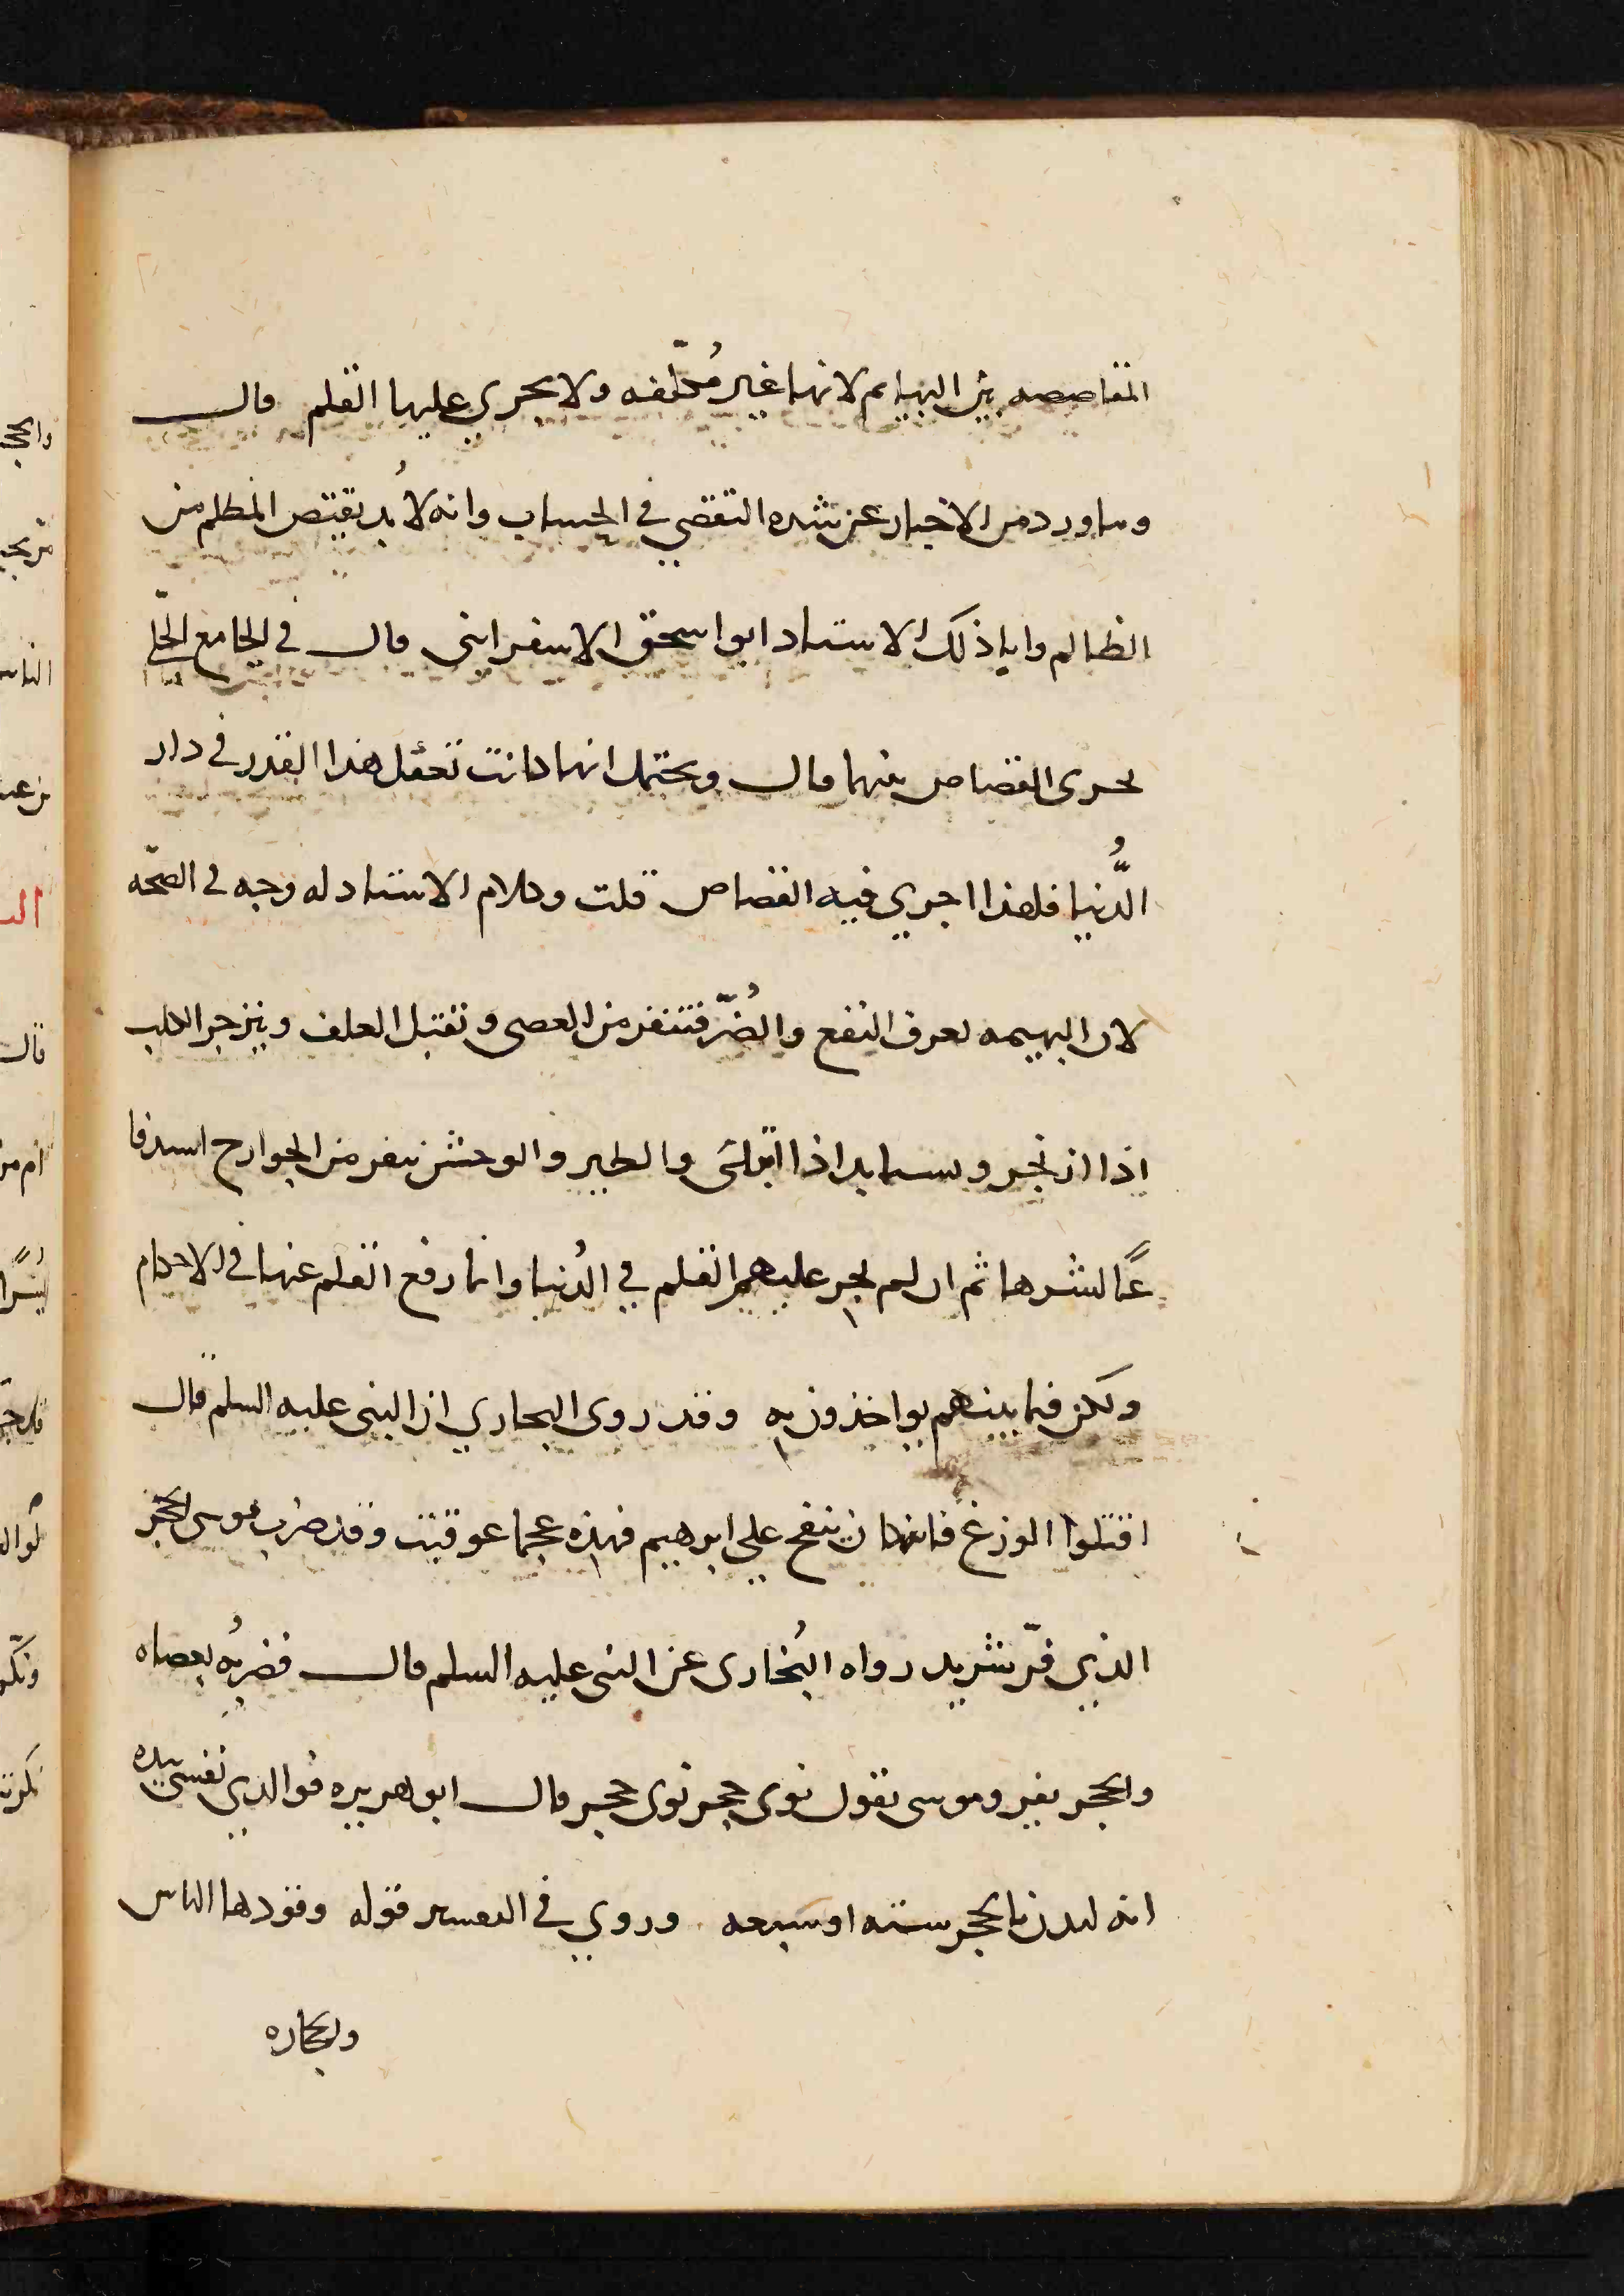 المقاصصه بين البهايم لانها غير مُكلّفه ولا يجري عليها القلم قال
وما ورد من الاخبار عن شده التقصي في الحساب وانه لا بُد يقتص المظلم من
الظالم وابا ذلك الاستاد ابو اسحق الاسفرايني قال في الجامع الجلي
يجرى القصاص بينهما قال ويحتمل انها كانت تعقل هذا القدر في دار
الدُّنيا فلهذا اجري فيه القصاص قلت وكلام الاستاد له وجه في الصحّه
لان البهيمه تعرف النفع والضُرّ فتنفر من العصى وتقبل العلف وينزجر الكلب
اذا ازنجر ويستاسد اذا اتلى والطير والوحش ينفر من الجوارح استدفا
عًا لشرها ثم ان لم يجر عليهم القلم في الدُنيا وانما رفع القلم عنها في الاحكام
ولكن فيما بينهم يواخذون به وقد روى البخاري ان النبي عليه السلم قال
اقتلوا الوزغ فانه كان ينفخ على ابرهيم فهذه عجما عوقبت وقد ضرب موسى الحجر
الذي فرّ بثوبه رواه البُخارى عن النبي عليه السلم قال فضربُه بعصاه
والحجر يفر وموسى يقول ثوبى حجر ثوبى حجر قال ابو هريره فوالدي نفسي بيده
انه لندب بالحجر سته او سبعه وروي في التفسير قوله وقودها الناس
والحجاره